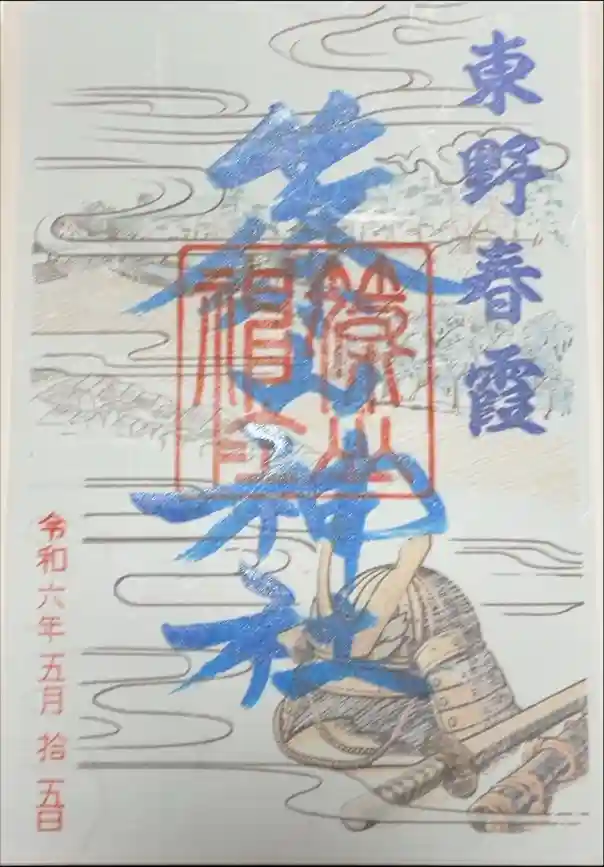 東野春霞
篠山神社
篠山
神社
令和六年五月拾五日